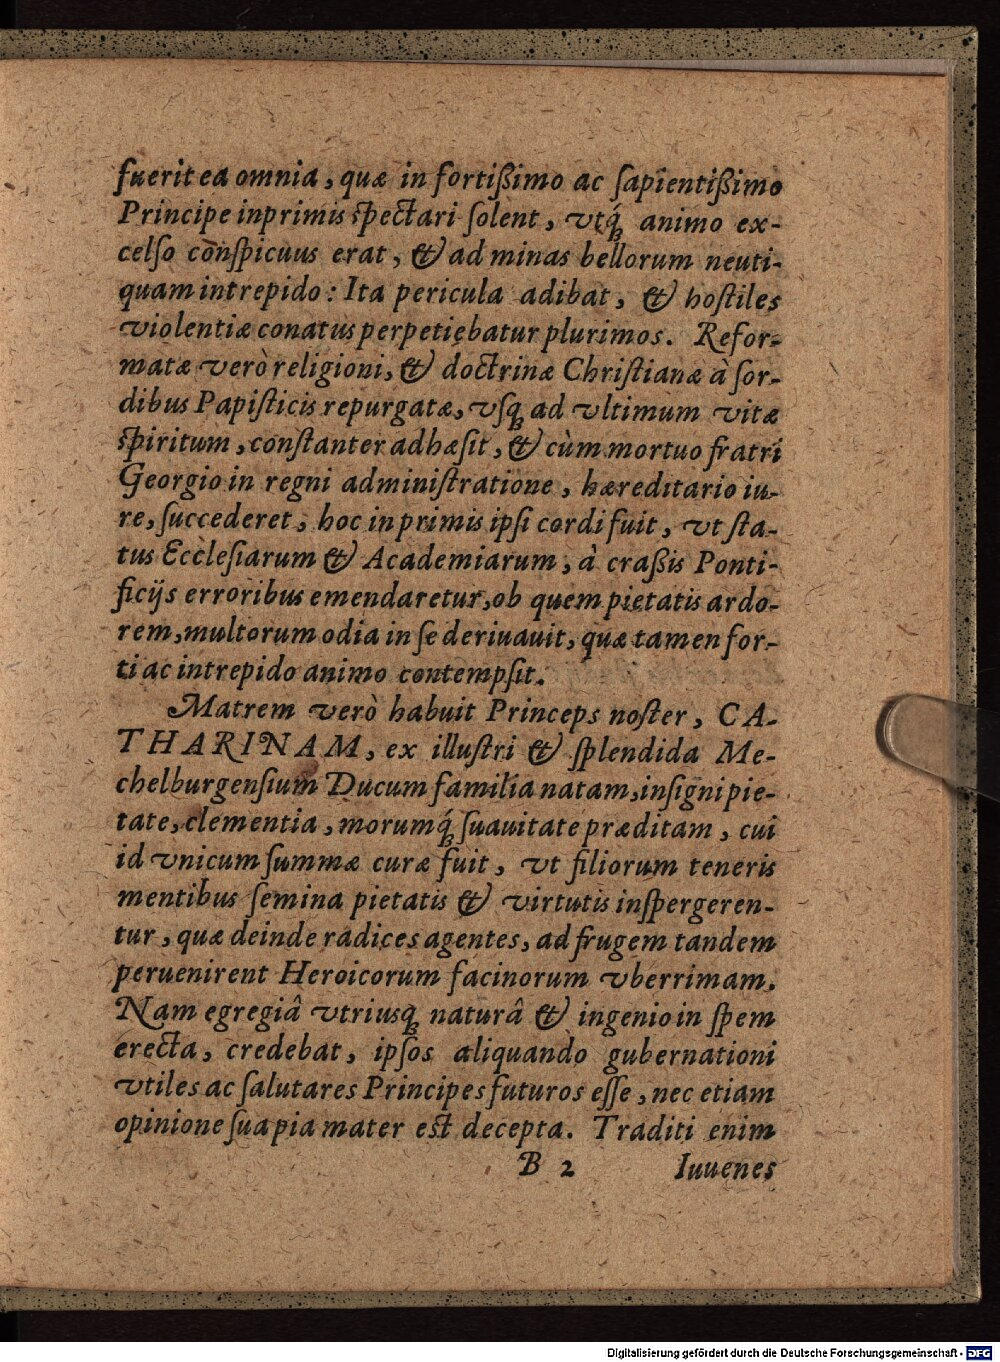 fuerit ea omnia, quæ in fortißimo ac ſapientißimo
Principe inprimis ſpectari ſolent, vtq́; animo ex-
celſo conſpicuus erat, & ad minas bellorum neuti-
quam intrepido: Ita pericula adibat, & hoſtiles
violentiæ conatus perpetiebatur plurimos. Refor-
matæ verò religioni, & doctrinæ Chriſtianæ à ſor-
dibus Papiſticis repurgatæ, vſq; ad vltimum vitæ
ſpiritum, conſtanter adhæſit, & cùm mortuo fratri
Georgio in regni adminiſtratione, hæreditario iu-
re, ſuccederet, hoc inprimis ipſi cordi fuit, vt ſta-
tus Eccleſiarum & Academiarum, à craßis Ponti-
ficijs erroribus emendaretur, ob quem pietatis ardo-
rem, multorum odia in ſe deriuauit, quæ tamen for-
ti ac intrepido animo contempſit.
Matrem verò habuit Princeps noſter, CA-
THARINAM, ex illuſtri & ſplendida Me-
chelburgenſium Ducum familia natam, inſigni pie-
tate, clementia, morumq́; ſuauitate præditam, cui
id vnicum ſummæ curæ fuit, vt filiorum teneris
mentibus ſemina pietatis & virtutis inſpergeren-
tur, quæ deinde radices agentes, ad frugem tandem
peruenirent Heroicorum facinorum vberrimam.
Nam egregiâ vtriusq; naturâ & ingenio in ſpem
erecta, credebat, ipſos aliquando gubernationi
vtiles ac ſalutares Principes futuros eſſe, nec etiam
opinione ſua pia mater eſt decepta. Traditi enim
B 2 Iuuenes
Digitalisierung gefördert durch die Deutsche Forschungsgemeinschaft - DFG